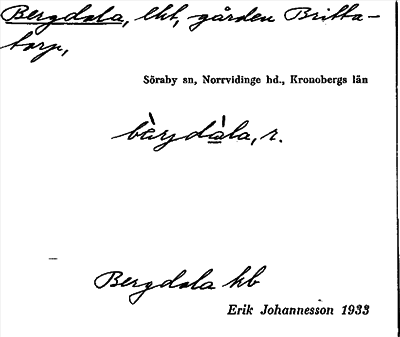 Bergdala, lht, gården Britta-
torp,
Söraby sn, Norrvidinge hd., Kronobergs län
bær̀jdàla, r.
Bergdala hb
Erik Johannesson 1933